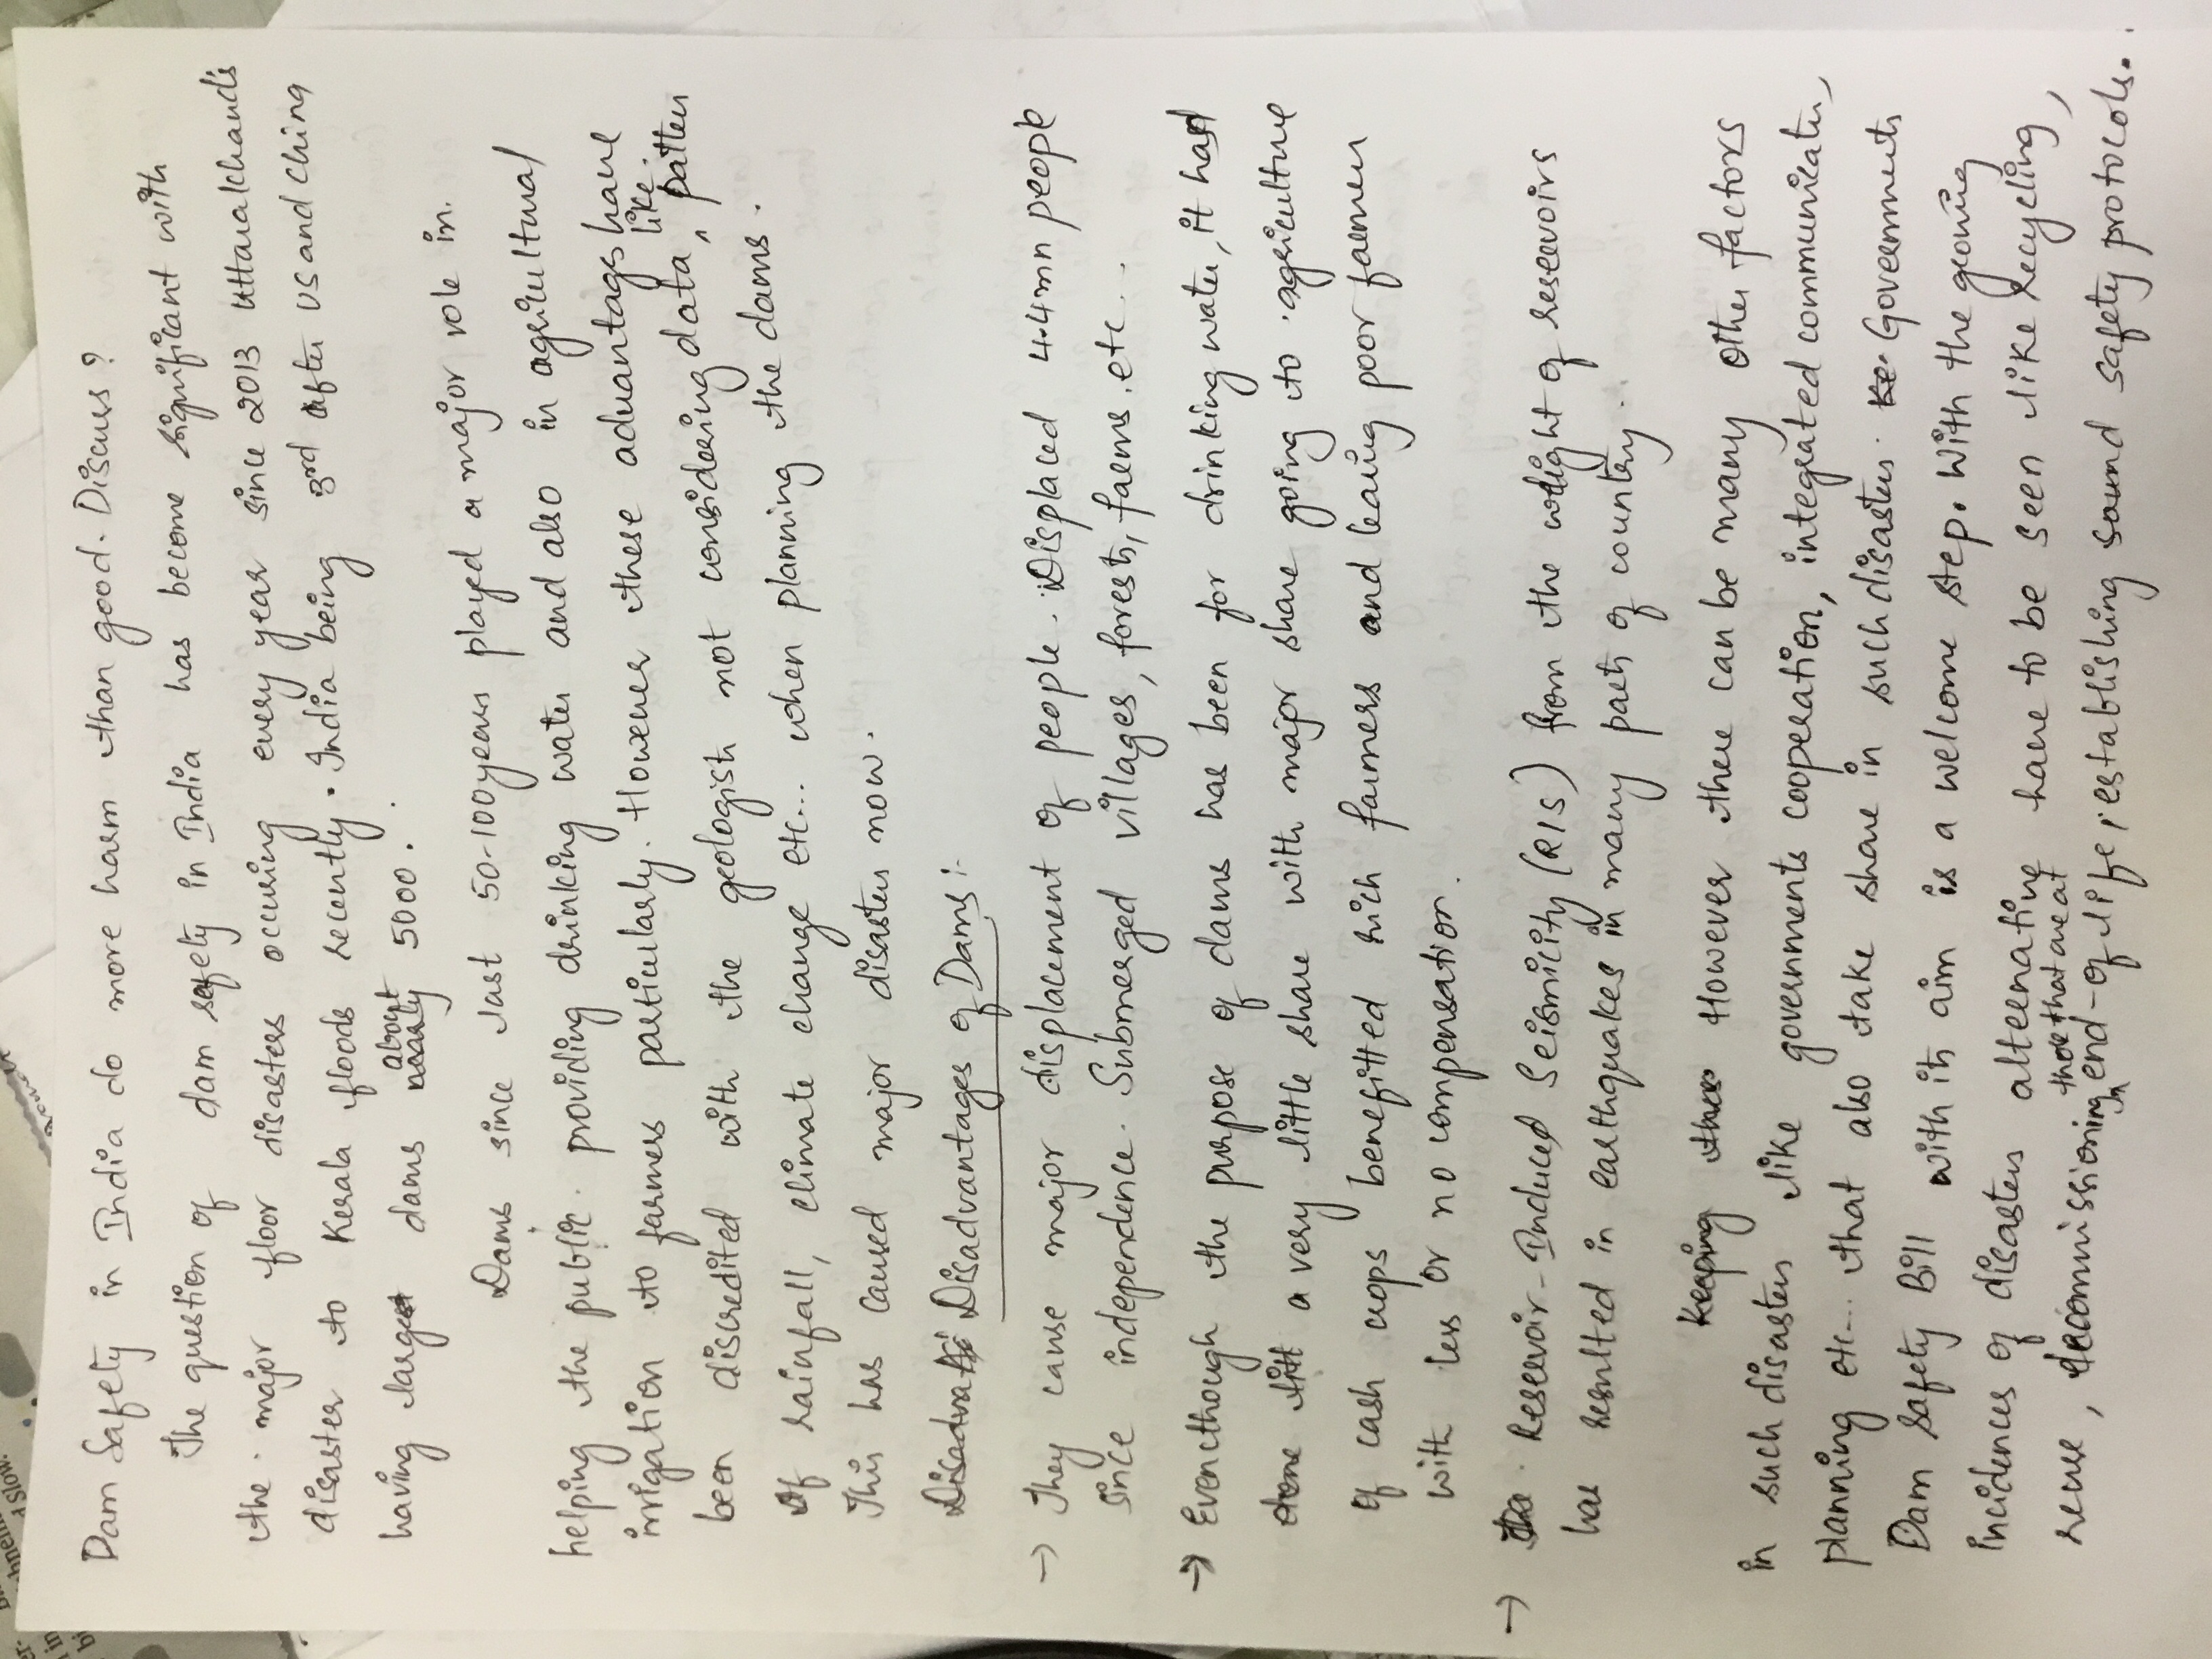 Dam Safety in India do more harm than good. Discuss?
The question of dam safety in India has become significant with
the major floor disasters occuring every year since 2013 Uttarakhand's
disaster to Kerala floods recently. India being 3rd after US and China
having large dams about 5000.
Dams since last 50-100 years played a major role in
helping the public. providing drinking water and also in agricultural
irrigation to farmers particularly. However these advantags have
been discredited with the geologist not considering data, like pattern
of rainfall, climate change etc... when planning the dams.
This has caused major disasters now.
Disadvantages of Dams:-
→ They cause major displacement of people. Displaced 4.4mn people
since independence. Submerged villages, forests, farms, etc...
→ Eventhough the purpose of dams has been for drinking water, it had
a very little share with major share going to agriculture
of cash crops benefitted rich farmers and leaving poor farmers
with less or no compensation.
→ Reservoir-Induced Seismicity (RIS) from the weight of reservoirs
has resulted in earthquakes in many parts of country.
However there can be many other factors
in such disasters like governments cooperation, integrated communication,
planning etc... that also take share in such disasters. Governments
Dam Safety Bill with its aim is a welcome step. With the growing
incidences of disasters alternative have to be seen like recycling,
reuse, decommissioning those that are at in end-of life, establishing sound safety protocols.